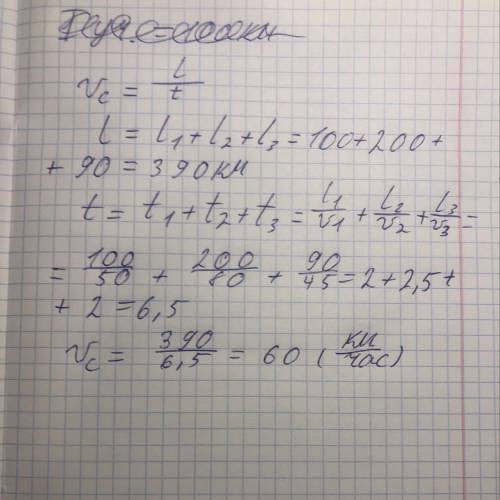 v_c = l/t
l = l₁ + l₂ + l₃ = 100 + 200 +
+ 90 = 390 км
t = t₁ + t₂ + t₃ = l₁/v₁ + l₂/v₂ + l₃/v₃ =
= 100/50 + 200/80 + 90/45 = 2 + 2,5 +
+ 2 = 6,5
v_c = 390/6,5 = 60 (км/час)